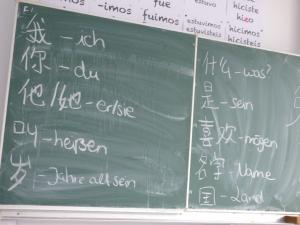 fue
hiciste
-imos
estuvimos
hizo
fuimos
estuvisteis
hicimos
hicisteis
我 - ich
你 - du
他/她 - er/sie
叫 - heißen
岁 - Jahre alt sein
什么 - was?
是 - sein
喜欢 - mögen
名字 - Name
国 - Land